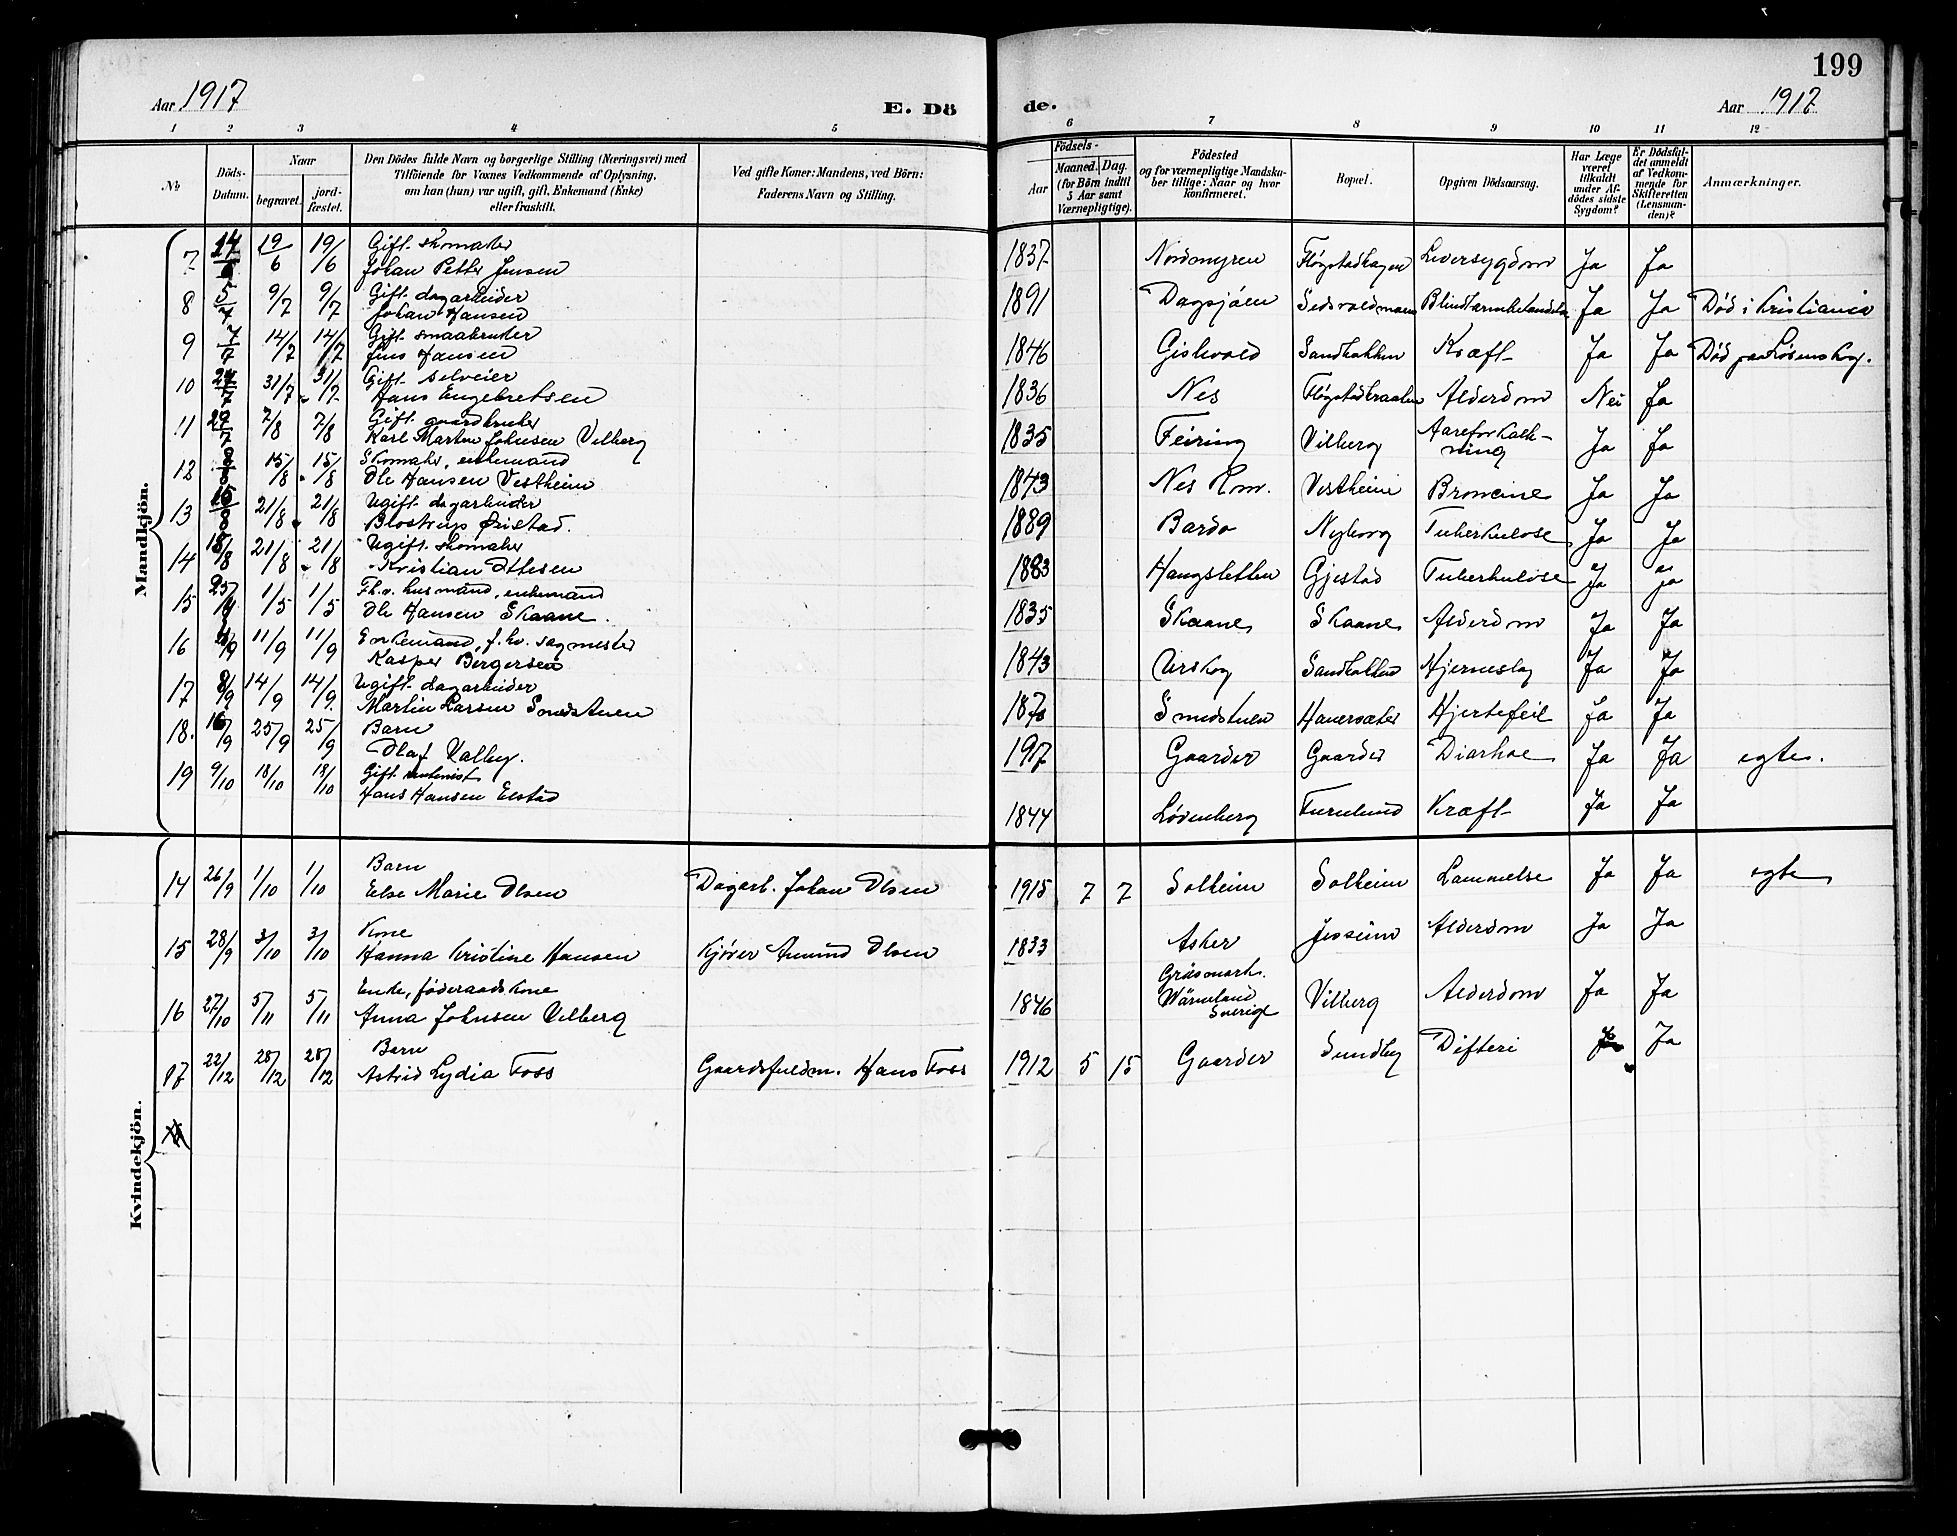 199
Aar 1917
E. Dö
de.
Aar 1917
1 2 3 4 5 6 7 8 9 10 11 12
No
Döds-
Datum.
Naar
begravet.
jord-
fæstet.
Den Dödes fulde Navn og borgerlige Stilling (Næringsvei) med
Tilföiende for Voxnes Vedkommende af Oplysning,
om han (hun) var ugift, gift, Enkemand (Enke)
eller fraskilt.
Ved gifte Koner: Mandens, ved Börn:
Faderens Navn og Stilling.
Födsels-
Aar
Maaned. Dag.
(for Börn indtil
5 Aar samt
Værnepligtige).
Födested
og for værnepligtige Mandska-
ber tillige: Naar og hvor
konfirmeret.
Bopæl.
Opgiven Dödsaarsag.
Har Læge
været
tilkaldt
under Af-
dödes sidste
Sygdom?
Er Dödsfal-
det anmeldt
af Vedkom-
mende for
Skifteretten
(Lensman-
den)?
Anmærkninger.
Mandkjön.
7 19/6 19/6 Gift. skomaker
Johan Petter Jensen
1837 Nordmyren Fløgstadhagen Leversygdom Ja Ja
8 5/7 9/7 9/7 Gift. dagarbeider
Johan Hansen
1891 Dagsjøen Ja Ja Død i Kristiania
9 7/7 14/7 14/7 Gift smaabruker
Jens Hansen
1846 Gislevold Sandbakken Kræft Ja Ja Død paa Løsenskog.
10 24/7 31/7 31/7 Gift. selveier
Hans Engebretsen
1836 Nes Fløgstadbraaten Alderdom Nei Ja
11 29/7 7/8 7/8 Gift gaardbruker
Karl Martin Johnsen Vilberg
1835 Feiring Vilberg Aareforkalk-
ning Ja Ja
12 15/8 15/8 Skomaker, enkemand
Ole Hansen Vestheim
1843 Nes Rom. Vestheim Ja Ja
13 21/8 21/8 Ugift. dagarbeider
Blostrup Øristad.
1889 Bardo Nyborg Tuberkulose Ja Ja
14 18/8 21/8 21/8 Ugift. skomaker
Kristian Ottesen
1883 Haugsletten Gjestad Tuberkulose Ja Ja
15 25/4 1/5 1/5 Fh.v. husmand, enkemand
Ole Hansen Skaane.
1835 Skaane Skaane Alderdom Ja Ja
16 11/9 11/9 Enkemand, f.hv. sagmester
Kasper Bergersen
1843 Urskog Sandbakken Hjerneslag Ja Ja
17 8/9 14/9 14/9. Ugift dagarbeider
Martin Larsen Smedstuen
1870 Smedstuen Hanersæter Hjertefeil Ja Ja
18. 16/9 25/9 25/9 Barn
Olaf Valby.
1917 Gaarder Gaarder Diarhoe Ja Ja egte.
19 9/10 18/10 18/10 Gift rentenist
Hans Hansen Elstad
1844 Løvenberg Furulund Kræft Ja Ja
Kvindekjön.
14 26/9 1/10 1/10 Barn
Else Marie Olsen Dagarb. Johan Olsen
1915 7 7 Solheim Solheim Lammelse Ja Ja egte
15 28/9 3/10 3/10 Kone
Hanna Kristine Hansen Kjører Amund Olsen
1833 Asker Jesseim Alderdom Ja Ja
16 27/10 5/11 5/11 Enke, føderaadskone
Anna Johnsen Vilberg
1846 Gräsmark.
Wärmland
Sverige Vilberg Alderdom Ja Ja
17 22/12 28/12 28/12 Barn
Astrid Lydia Foss Gaardsfuldm. Hans Foss
1912 5 15 Gaarder Sundby Difteri Ja Ja